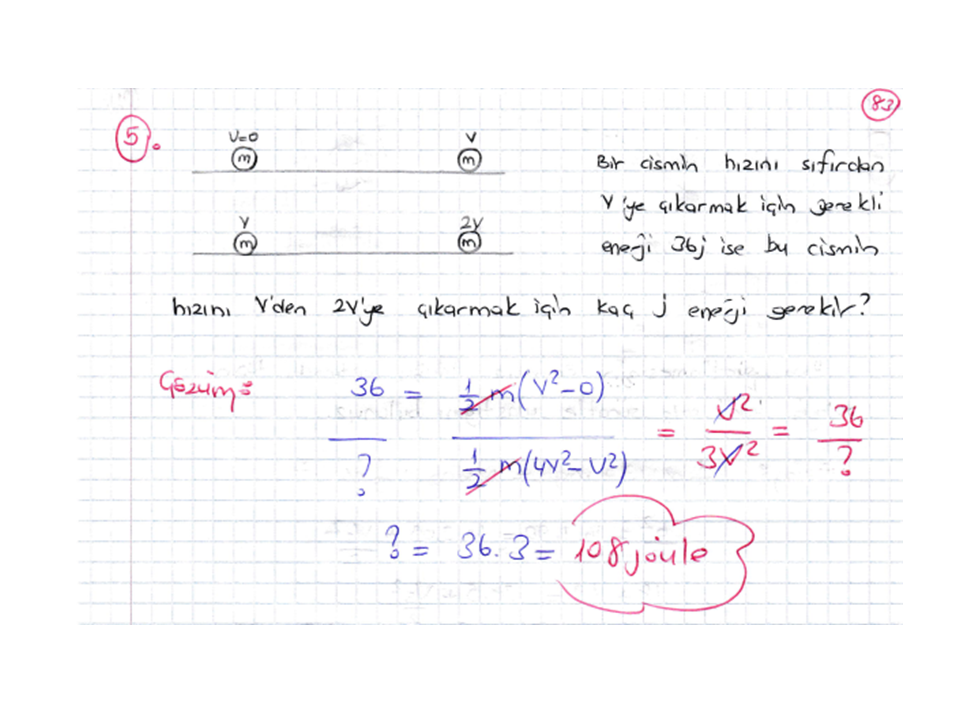 83
5.
V=0 V
m m
Bir cismin hızını sıfırdan
V'ye çıkarmak için gerekli
V 2V
m m
enerji 36j ise bu cismin
hızını V'den 2V'ye çıkarmak için kaç J enerji gerekir?
Çözüm:
36 / ? = 1/2 m(V²-0) / 1/2 m(4V²-V²) = V² / 3V² = 36 / ?
? = 36.3 = 108 joule